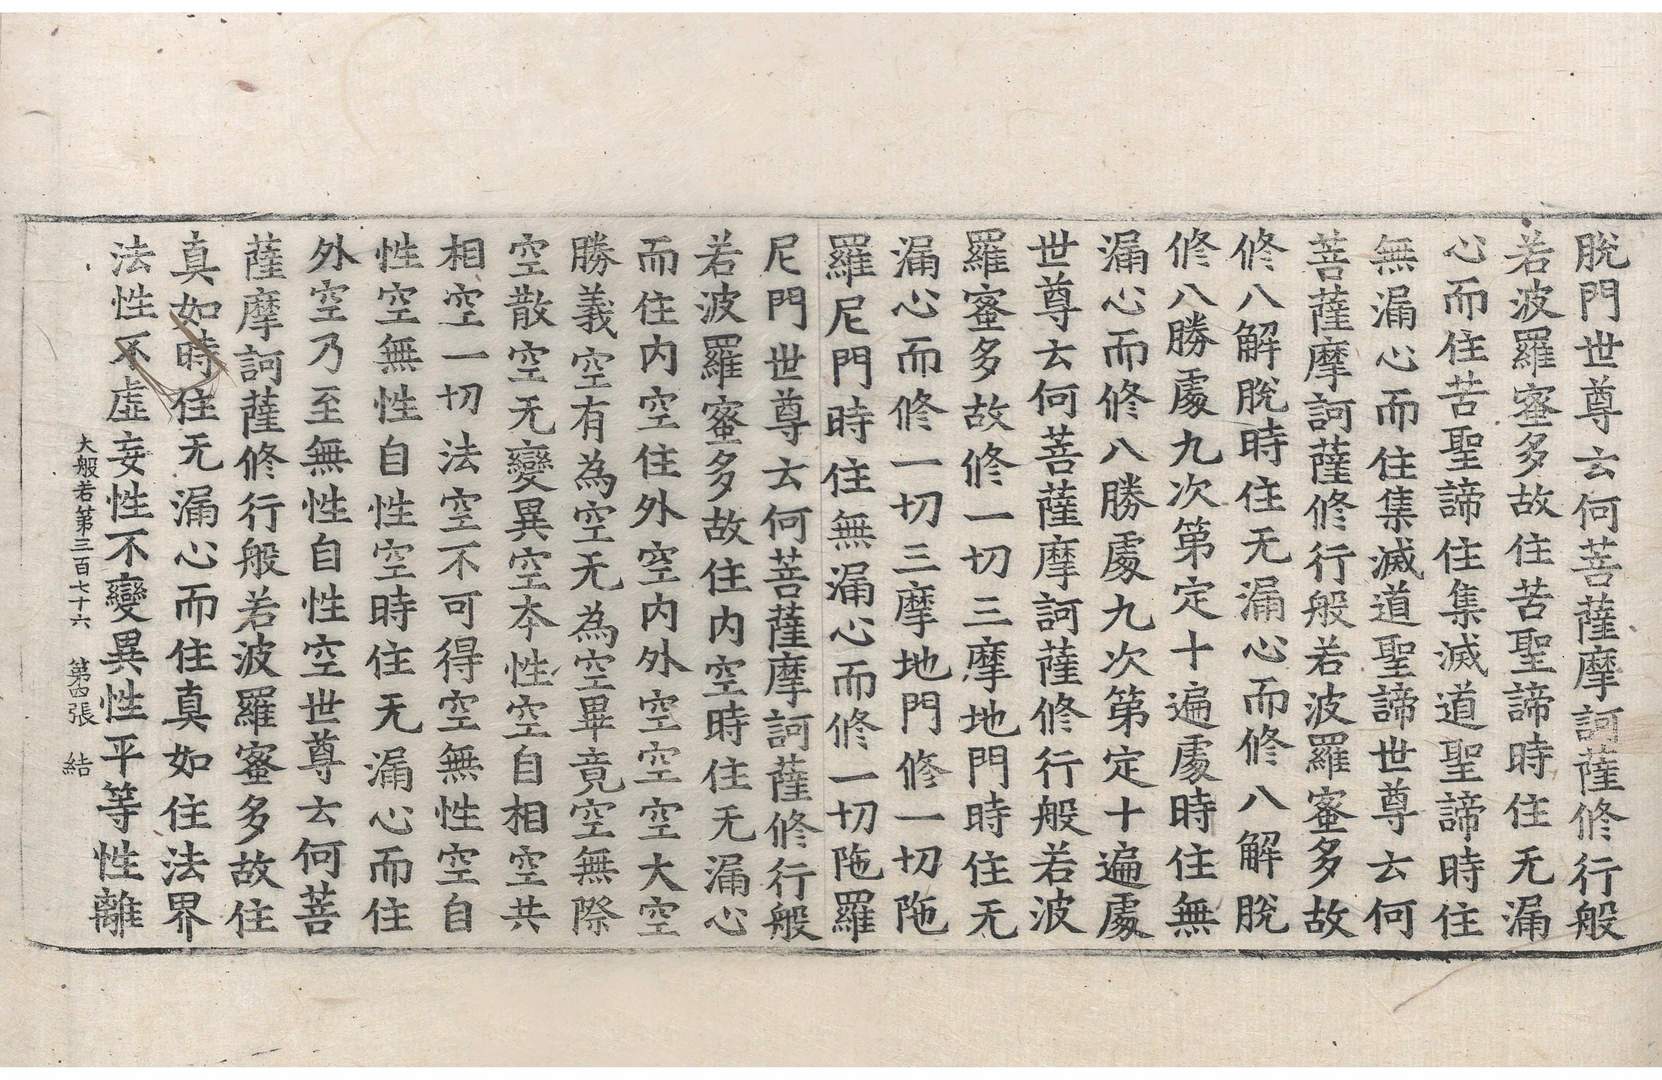 脫門世尊云何菩薩摩訶薩修行般
若波羅蜜多故住苦聖諦時住无漏
心而住苦聖諦住集滅道聖諦時住
無漏心而住集滅道聖諦世尊云何
菩薩摩訶薩修行般若波羅蜜多故
修八解脫時住无漏心而修八解脫
修八勝處九次第定十遍處時住無
漏心而修八勝處九次第定十遍處
世尊云何菩薩摩訶薩修行般若波
羅蜜多故修一切三摩地門時住无
漏心而修一切三摩地門修一切陁
羅尼門時住無漏心而修一切陁羅
尼門世尊云何菩薩摩訶薩修行般
若波羅蜜多故住內空時住无漏心
而住內空住外空內外空空空大空
勝義空有為空无為空畢竟空無際
空散空无變異空本性空自相空共
相空一切法空不可得空無性空自
性空無性自性空時住无漏心而住
外空乃至無性自性空世尊云何菩
薩摩訶薩修行般若波羅蜜多故住
真如時住无漏心而住真如住法界
法性不虛妄性不變異性平等性離
大般若第三百七十六 第四張 結